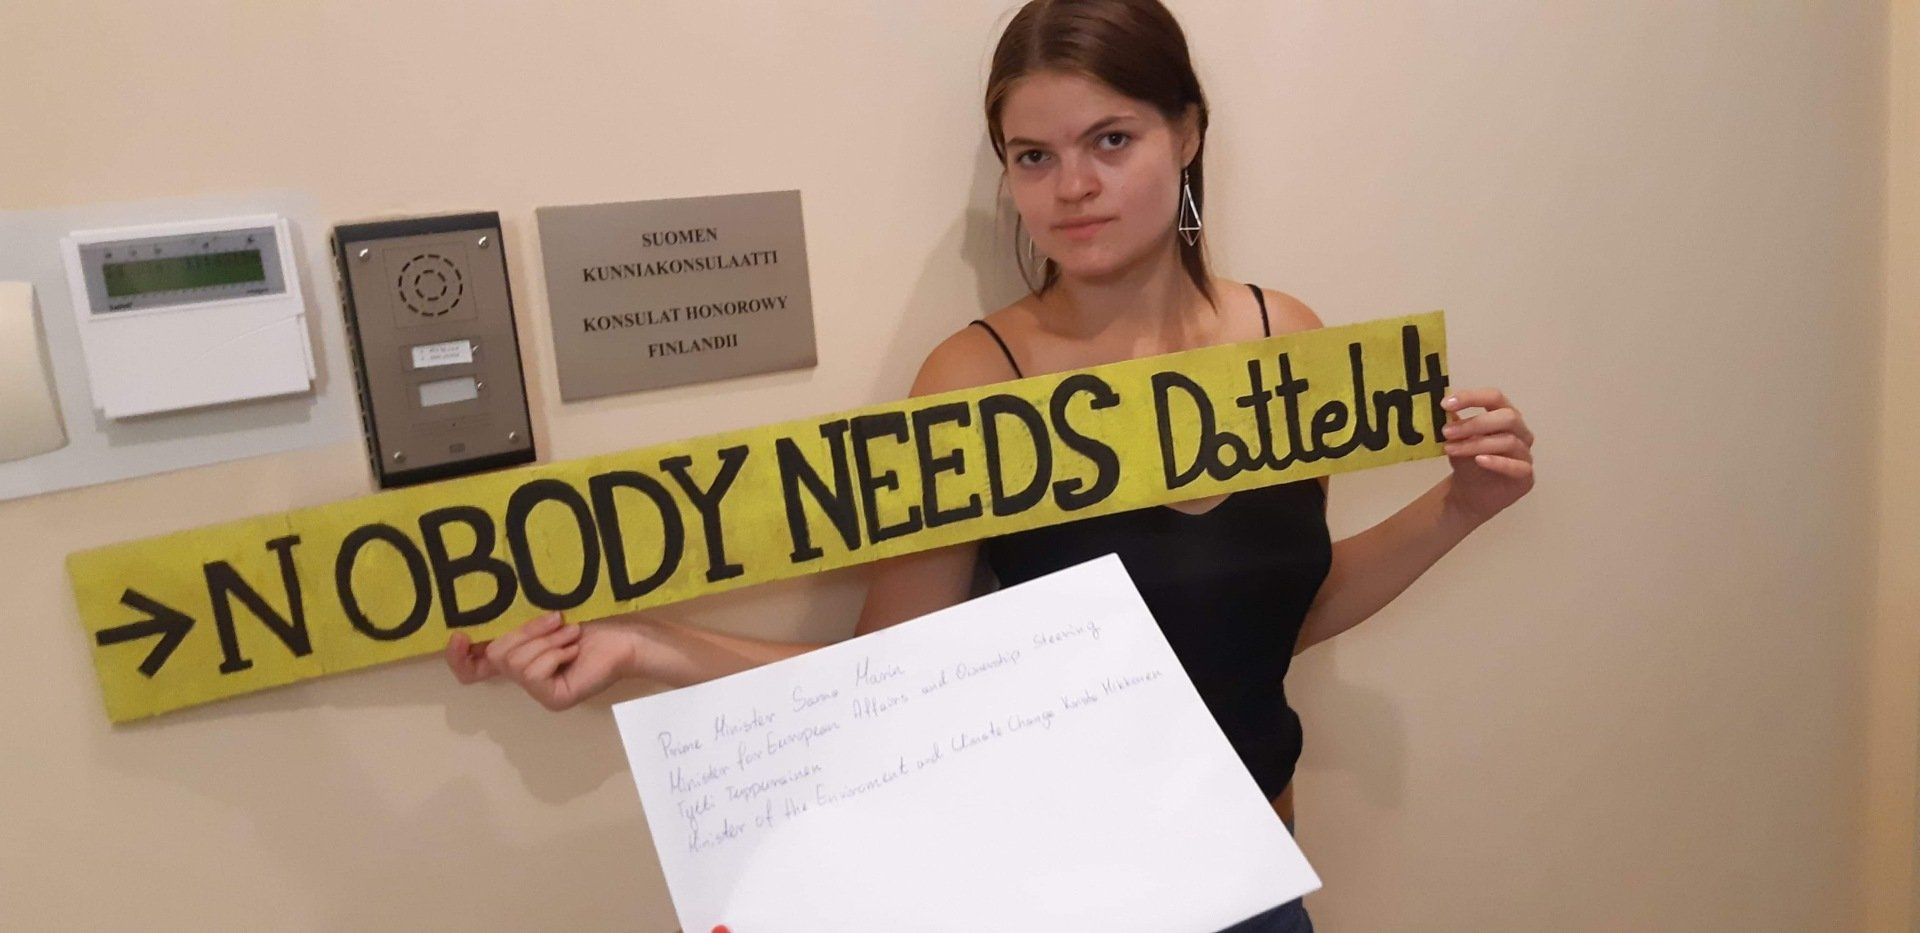 SUOMEN
KUNNIAKONSULAATTI
KONSULAT HONOROWY
FINLANDII
→NOBODY NEEDS Datteln4
Prime Minister Sanna Marin
Minister for European Affairs and Ownership Steering
Tytti Tuppurainen
Minister of the Environment and Climate Change Krista Mikkonen